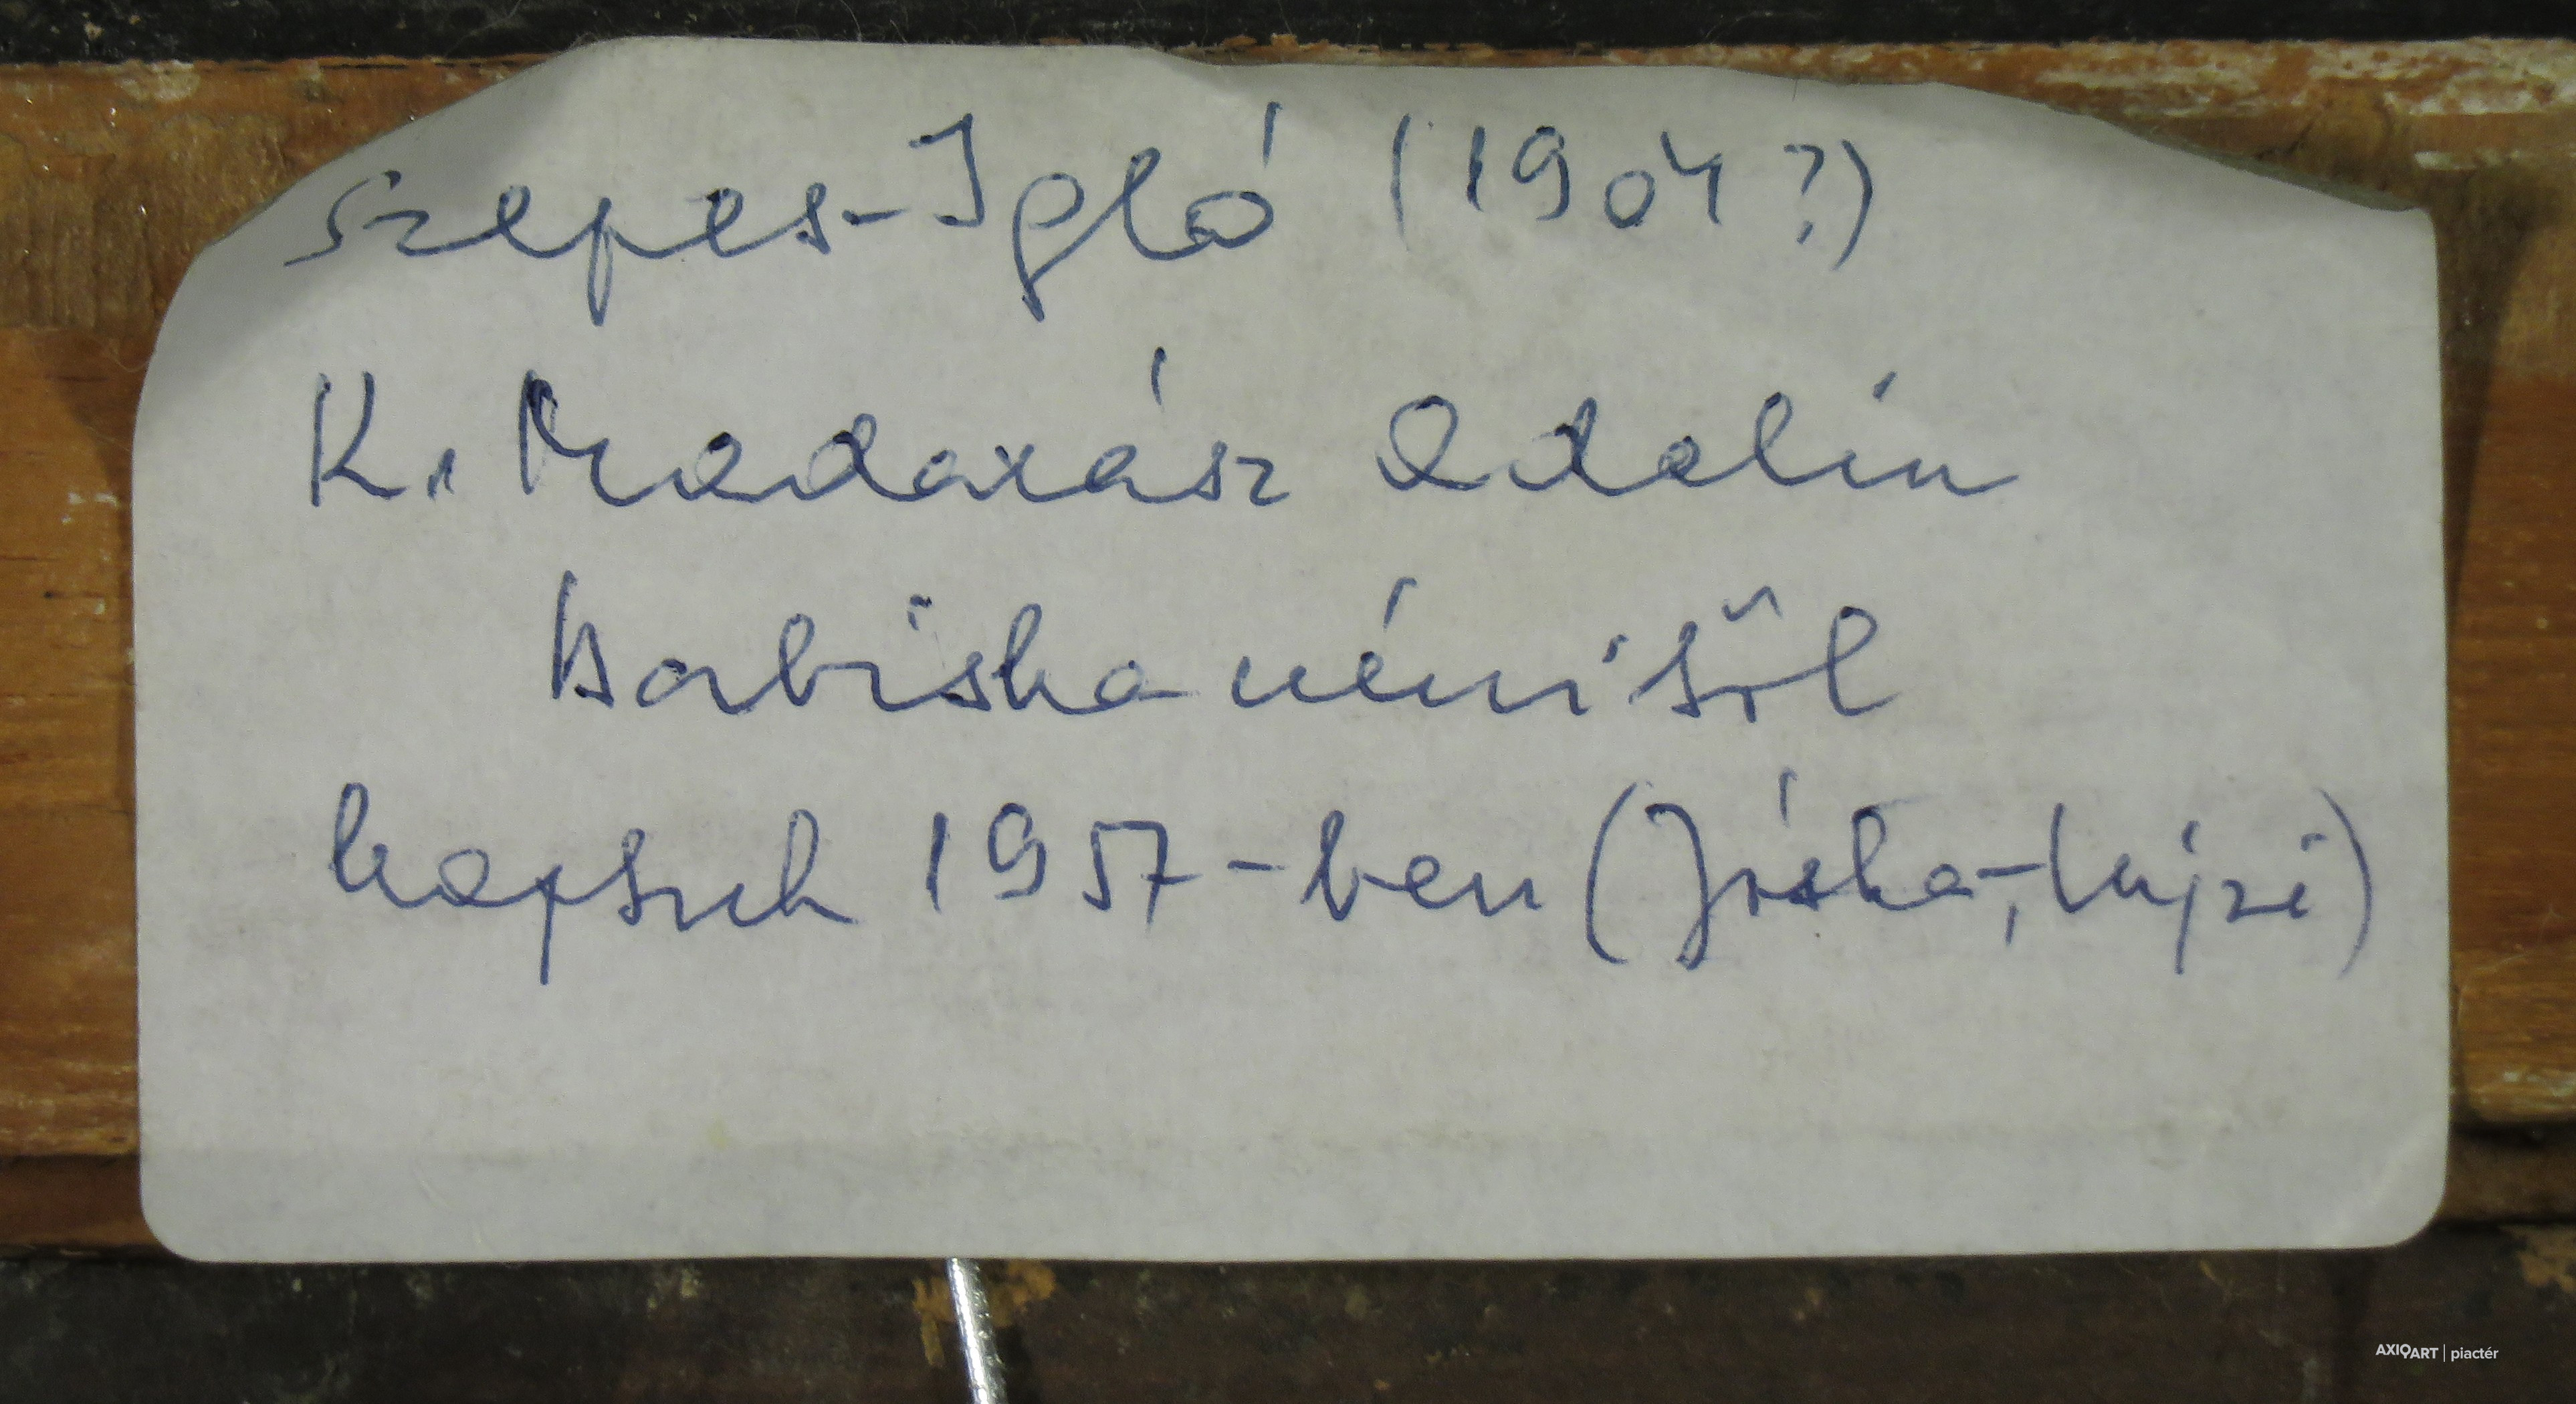 Szepes-Igló (1904?)
K. Madarász Adelin
Boriska nénitől
kaptuk 1957-ben (Jóska-, Lujzi)
AXIOART | piactér